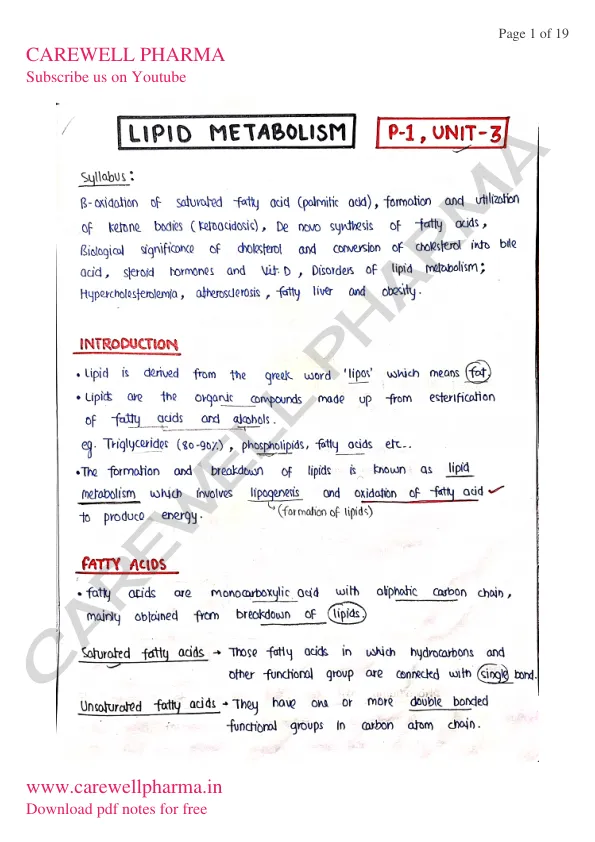 Page 1 of 19
CAREWELL PHARMA
Subscribe us on Youtube
LIPID METABOLISM P-1, UNIT-3
Syllabus:
β-oxidation of saturated fatty acid (palmitic acid), formation and utilization
of ketone bodies (ketoacidosis), De novo synthesis of fatty acids,
Biological significance of cholesterol and conversion of cholesterol into bile
acid, steroid hormones and Vit. D, Disorders of lipid metabolism;
Hypercholesterolemia, atherosclerosis, fatty liver and obesity.
INTRODUCTION
• Lipid is derived from the greek word 'lipos' which means fat.
• Lipids are the organic compounds made up from esterification
of fatty acids and alcohols.
eg. Triglycerides (80-90%), phospholipids, fatty acids etc..
• The formation and breakdown of lipids is known as lipid
metabolism which involves lipogenesis and oxidation of fatty acid
to produce energy. (formation of lipids)
FATTY ACIDS
• fatty acids are monocarboxylic acid with aliphatic carbon chain,
mainly obtained from breakdown of lipids.
Saturated fatty acids → Those fatty acids in which hydrocarbons and
other functional group are connected with single bond.
Unsaturated fatty acids → They have one or more double bonded
functional groups in carbon atom chain.
CAREWELL PHARMA
www.carewellpharma.in
Download pdf notes for free